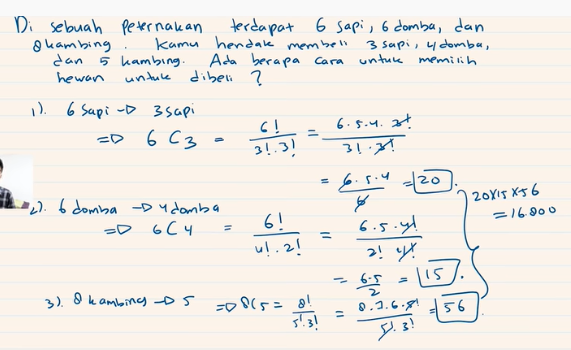 Di sebuah peternakan terdapat 6 sapi, 6 domba, dan
8 kambing. Kamu hendak membeli 3 sapi, 4 domba,
dan 5 kambing. Ada berapa cara untuk memilih
hewan untuk dibeli?
1). 6 sapi → 3 sapi
⇒ 6C3 = 6!/3!.3! = 6.5.4.3!/3!.3!
= 6.5.4/6 = 20.
2). 6 domba → 4 domba
⇒ 6C4 = 6!/4!.2! = 6.5.4!/2!4!
= 6.5/2 = 15.
3). 8 kambing → 5 ⇒ 8C5 = 8!/5!.3! = 8.7.6.5!/5!.3! = 56
20x15x56
= 16.800